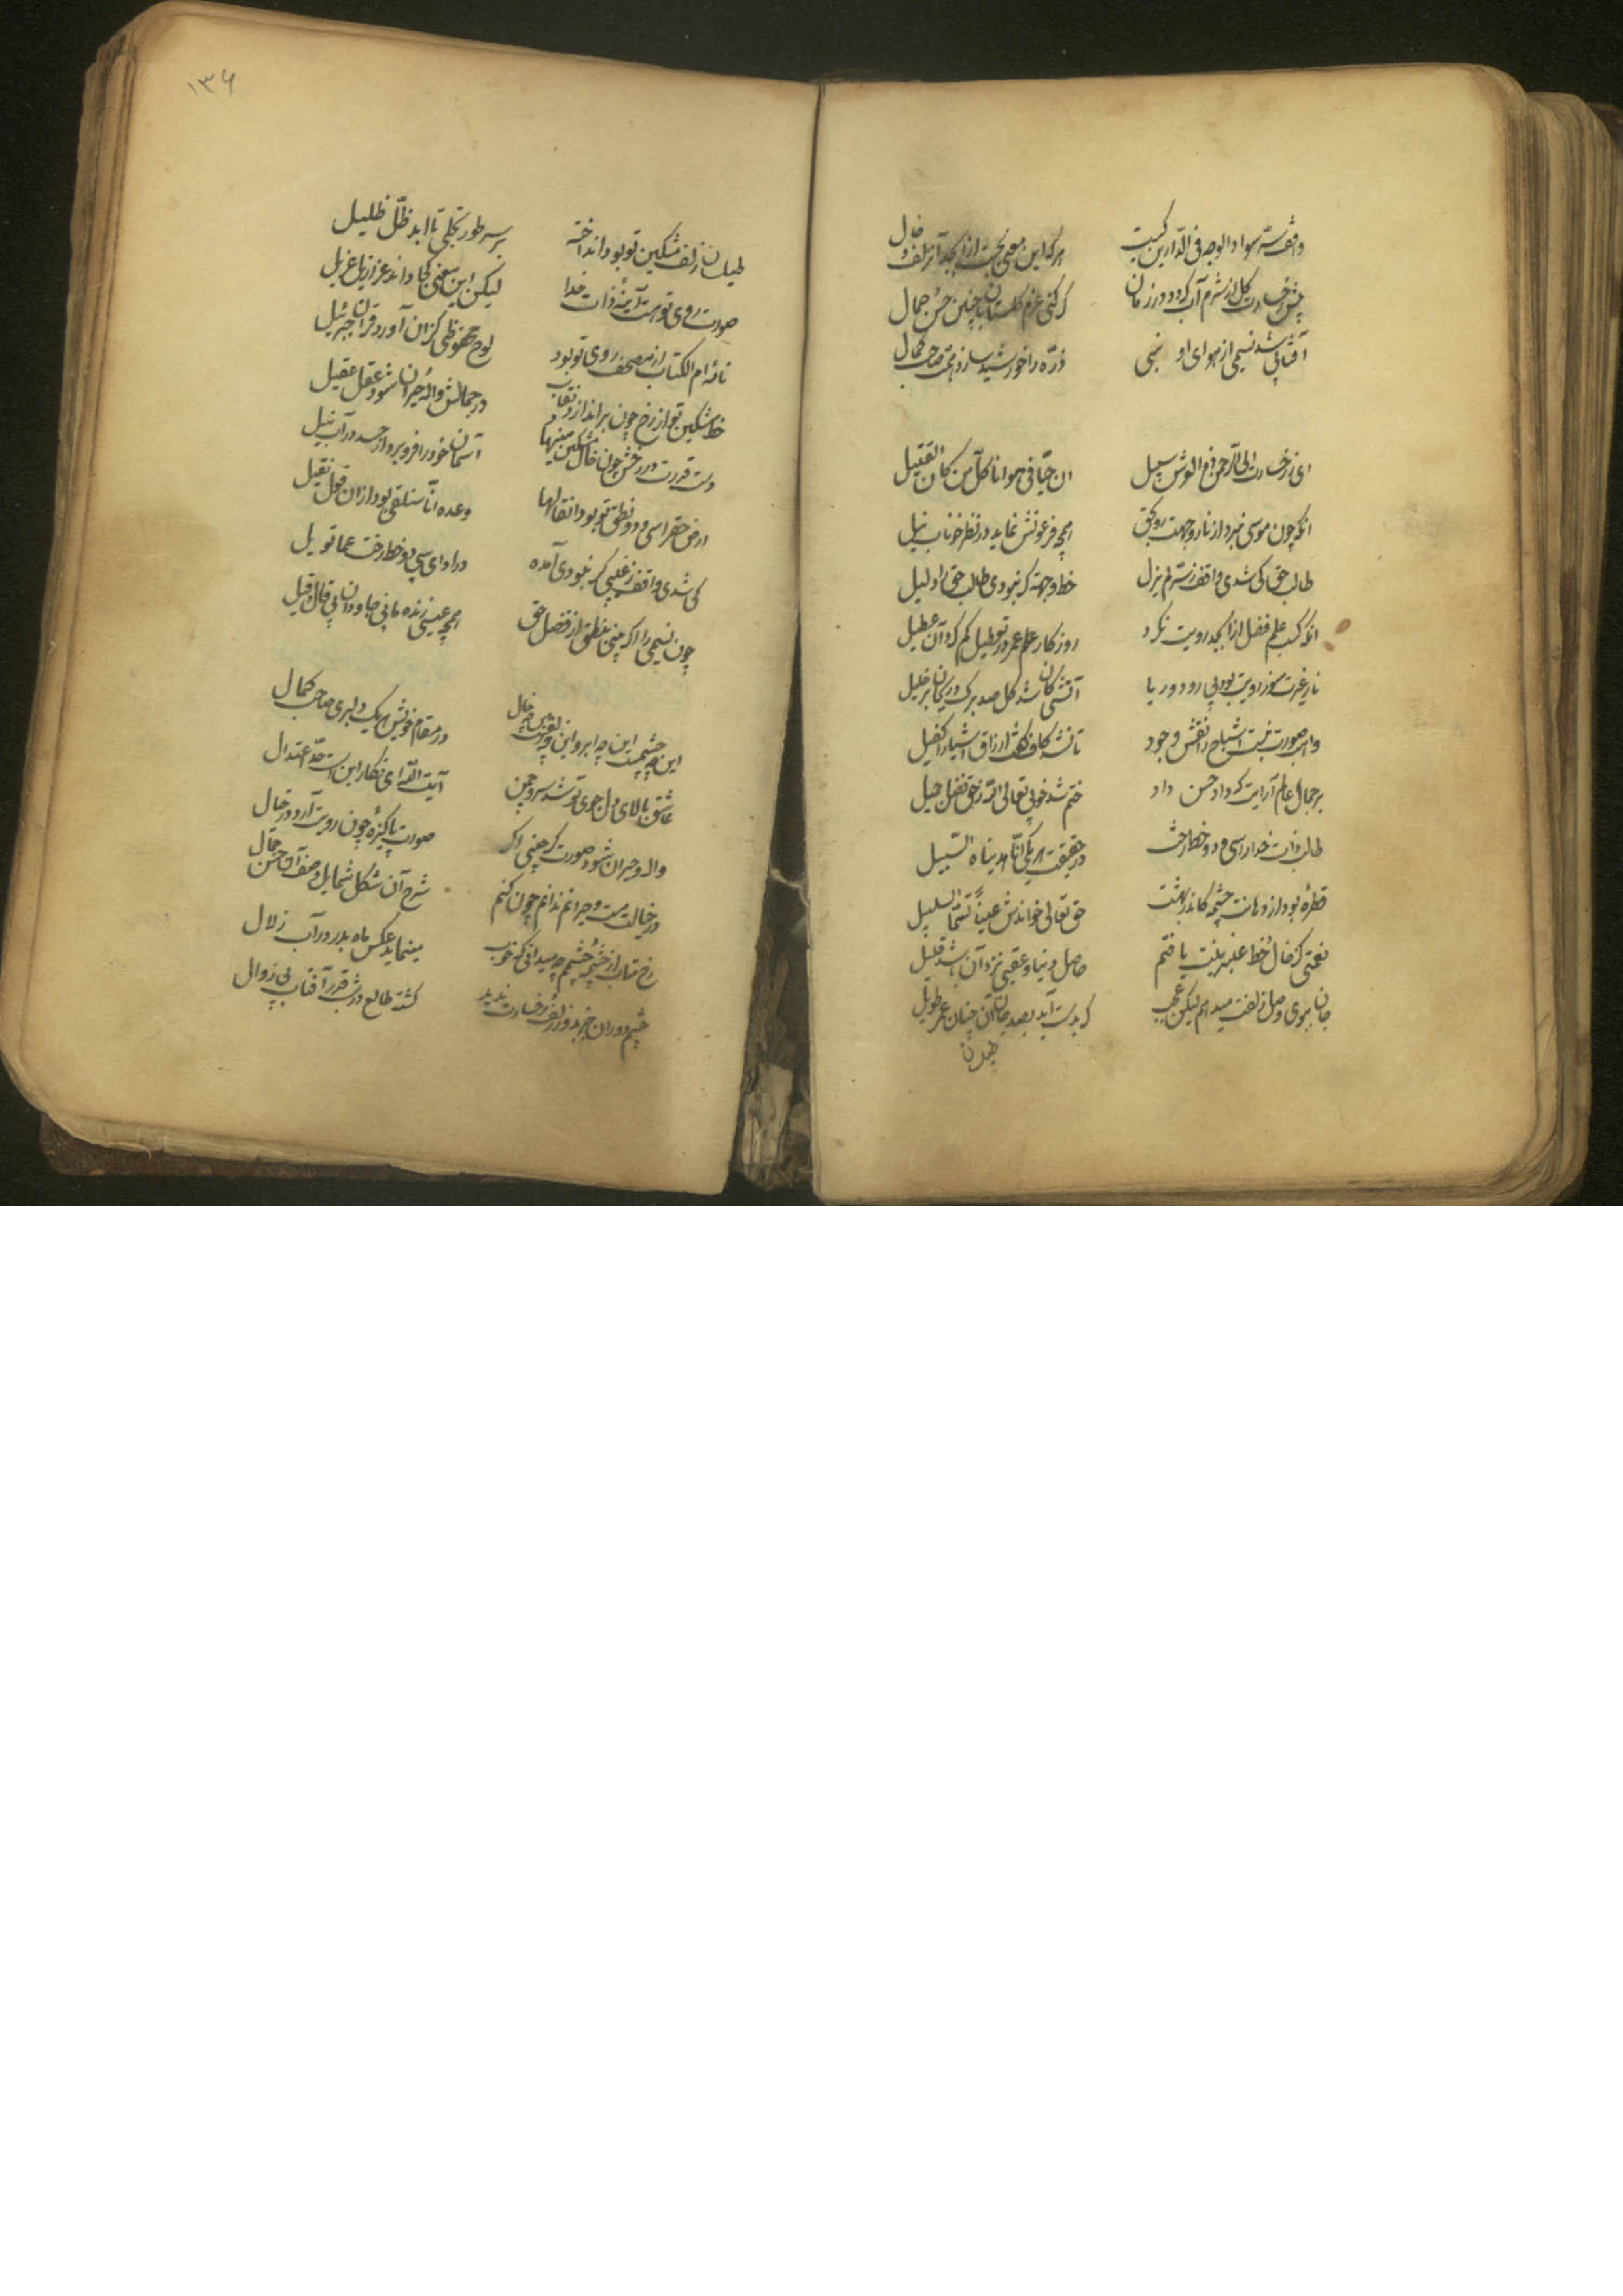 واقف سر سواد الوجه فی الدارین کیست
هرکه این معنی بجست از ابجد آن زلف و خال
پیش رخسارت گل از شرم آب گردد در زمان
گر کنی عزم گلستان با چنین حسن و جمال
آفتابی شد نسیمی از هوای او
ذره را خورشید سازد همت صاحب کمال
ای ز رخسارت الی الرحمن ذی العرش سبیل
ان حیا فی هوانا کل من کان القتیل
انکه چون موسی نبرد از نار وجهت ره بحق
همچو فرعونش نماید در نظر خوناب نیل
طالب حق کی شدی واقف ز سر لم یزل
خط وجهت گر نبودی طالب حق را دلیل
انکه کسب علم فضل از ابجد رویت نکرد
روزگار علم عمر در تعطیل کم کرد آن عطیل
نار غیرت سوز رویت بود بی رود و ریا
آتشی کان شد گل صد برگ و ریحان بر خلیل
واهب صورت نبست اشباح را نقش وجود
تا نشد کاف کفت ارزاق اشیا را کفیل
بر جمال عالم آرایت که داد حسن داد
ختم شد خوبی تعالی الله زهی فضل جمیل
طالب ذات خدا را سی و دو خط رخت
در حقیقت هر یکی انا هدیناه السبیل
قطره بود از دهانت چشمه کاندر بهشت
حق تعالی خواندش عینا تسمی سلسبیل
نعمتی کز خال و خط عنبرینت یافتم
حاصل دنیا و عقبی نزد آن باشد قلیل
جان ببوی وصل زلفت میدهم لیکن عجب
که بدست آید بصد جان آن چنان عمر طویل
طیلسان
۱۳۶
طیلسان زلف مشکین تو بود انداخته
بر سر طور تجلی تا ابد ظل ظلیل
صورت روی تو هست آینه ذات خدا
لیکن این معنی کجا داند عزازیل غریل
نائه ام الکتاب از مصحف روی تو بود
لوح محفوظی کزان آورد قرآن جبرئیل
خط مشکین تو از رخ چون براندازد نقاب
در جمالش واله و حیران شود عقل عقیل
دست قدرت در رخش چون خال مشکین مینهاد
آسمان خود را فرو برد از حسد در آب نیل
ارض حق را سی و دو نطق تو بود انقالها
وعده انا سنلقی بود ازان قول ثقیل
کی شدی واقف ز غیبی گر نبودی آمده
در ادای سی و دو خط رخت عما تویل
چون نسیمی را اگر بینی بنطق از فضل حق
همچو عیسی زنده مانی جاودان بی قال و قیل
این چه چشمست این چه ابرو این چه زلفست این چه خال
در مقام خویش هر یک دلبری صاحب کمال
عاشق بالای دلجوی تو شد سرو چمن
آیت الله ای نگار این است حد اعتدال
واله و حیران شود صورتگر چینی اگر
صورت پاکیزه چون رویت آرد در خیال
در خیالت مست و حیرانم ندانم چون کنم
شرح آن شکل و شمایل وصف آن حسن و جمال
رخ متاب از چشمه چشمم چو میدانی که خوب
مینماید عکس ماه بدر در آب زلال
چشم دوران جز بدور زلف و رخسارت ندید
گشته طالع در شب قدر آفتاب بی زوال